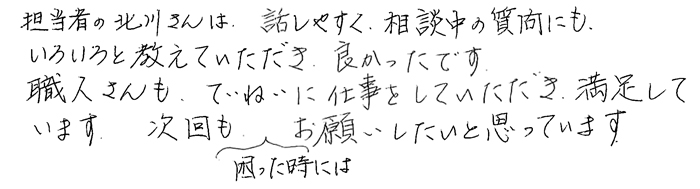 担当者の北川さんは、話しやすく、相談中の質問にも、
いろいろと教えていただき、良かったです。
職人さんも、ていねいに仕事をしていただき、満足して
います。次回も、お願いしたいと思っています
困った時には